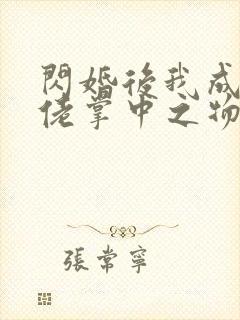 閃婚後我成
佬掌中之物
張常寧